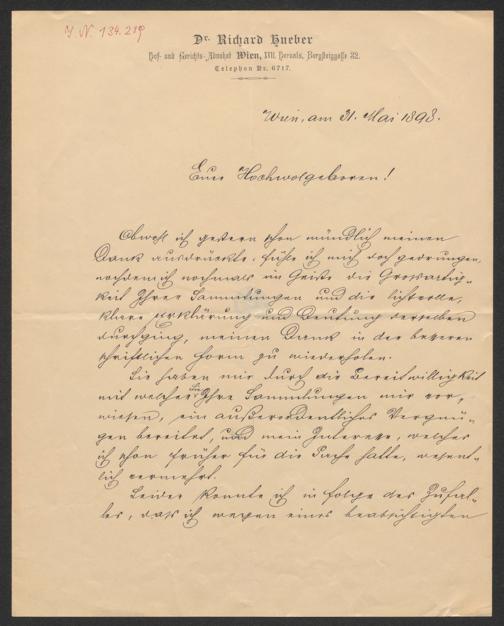 I. N. 134.219
Dr. Richard Hueber
Hof- und Gerichts-Advokat Wien, XVII. Hernals, Bergsteiggasse 22.
Telephon Nr. 6717.
Wien, am 31. Mai 1898.
Euer Hochwolgeboren!
Obwohl ich gestern schon mündlich meinen
Dank ausdrückte, fühle ich mich doch gedrungen,
nachdem ich nochmals im Geiste die Grossartig-
keit Ihrer Sammlungen und die lichtvolle,
klare Erklärung und Deutung derselben
durchging, meinen Dank in der
schriftlichen Form zu wiederholen.
Sie haben mir durch die Bereitwilligkeit
mit welcher Sie Ihre Sammlungen mir vor-
wiesen, ein außerordentliches Vergnü-
gen bereitet, und mein Interesse, welches
ich schon früher für die Sache hatte, wesent-
lich vermehrt.
Leider konnte ich in folge des Zufal-
les, dass ich wegen eines beabsichtigten